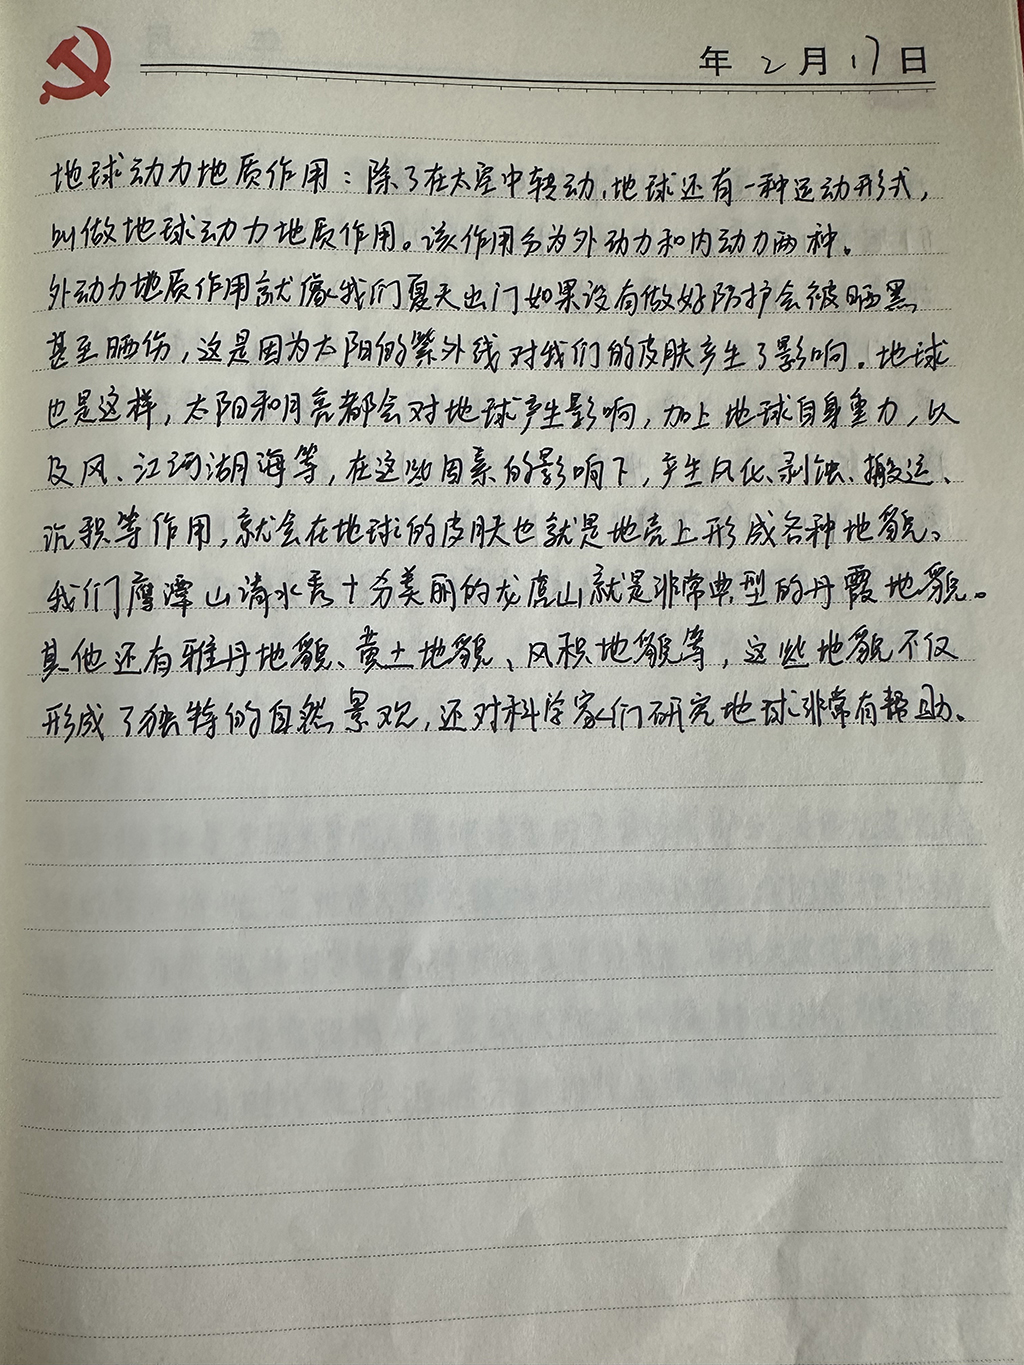 年 2 月 17 日
地球动力地质作用：除了在太空中转动，地球还有一种运动形式，
叫做地球动力地质作用。该作用分为外动力和内动力两种。
外动力地质作用就像我们夏天出门如果没有做好防护会被晒黑
甚至晒伤，这是因为太阳的紫外线对我们的皮肤产生了影响。地球
也是这样，太阳和月亮都会对地球产生影响，加上地球自身重力，以
及风、江河湖海等，在这些因素的影响下，产生风化、剥蚀、搬运、
沉积等作用，就会在地球的皮肤也就是地壳上形成各种地貌。
我们鹰潭山清水秀十分美丽的龙虎山就是非常典型的丹霞地貌。
其他还有雅丹地貌、黄土地貌、风积地貌等，这些地貌不仅
形成了独特的自然景观，还对科学家们研究地球非常有帮助。